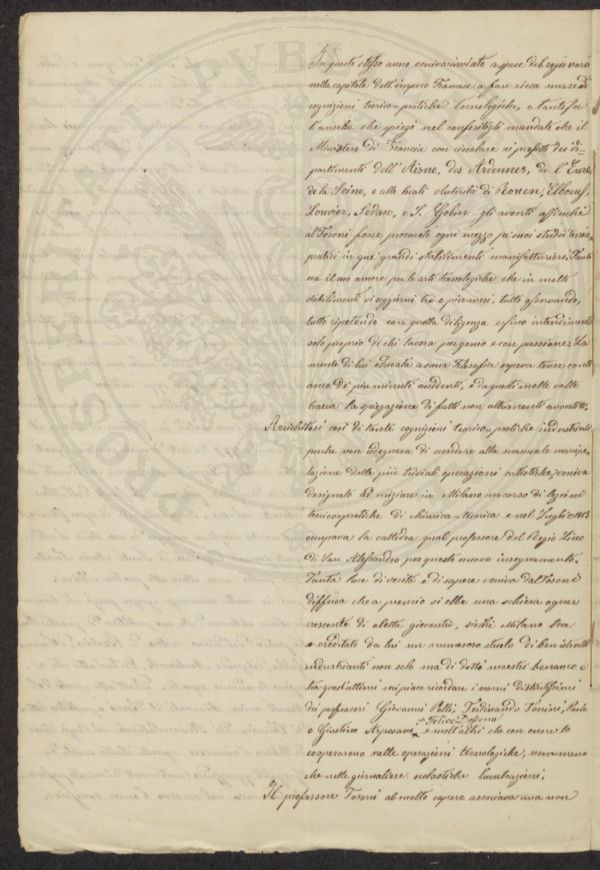 In questo stesso anno veniva inviato a spese del regio erario
nella capitale dell'impero Francese a fare ricca messe di
cognizioni teorico-pratiche tecnologiche, e tanta fu
l'amore che spiegò nel conferitogli mandato che il
Ministero di Francia con circolare ai prefetti dei di=
partimenti dell'Aisne, des Ardennes, de l'Eure,
de la Seine, e alle locali Autorità di Rouen, Elboeuf,
Louvier, Sedan, e S. Gobier gli avverti affinchè
al Fosoni fosse procurato ogni mezzo pe' suoi studii teorico
pratici in que' grandi stabilimenti manifatturieri. Tanto
era il suo amore per le arti tecnologiche che in molti
stabilimenti vi soggiornò tre e più mesi, tutto osservando,
tutto ripetendo con quella diligenza e fino intendimento
solo proprio di chi lavora per genio e con passione. La
mente di lui educata a sana filosofia sapeva tener conto
anco de' più minuti accidenti, e da questi molte volte
traeva la spiegazione di fatti non altrimenti avvertiti.
Arricchitosi così di tante cognizioni teorico-pratiche industriali
perchè non isdegnava di scendere alla manuale manipo=
lazione delle più triviali operazioni artistiche, veniva
designato ad iniziare in Milano un corso di lezioni
teorico-pratiche di chimica-tecnica e nel Luglio 1813
occupava la cattedra qual professore del Regio Liceo
di San Alessandro per questo nuovo insegnamento.
Tanta luce di verità e di sapere veniva dal Fosoni
diffusa che a premio si ebbe una schiera ognor
crescente di eletta gioventù, sicchè Milano
ereditato da lui un numeroso stuolo di ben istrutti
industrianti non solo ma di dotti maestri benanco e
tra quest'ultimi mi piace ricordare i nomi distintissimi
dei professori Giovanni Pelli, Ferdinando Tonini, Paolo
+ Felice Dossena
e Giustino Arpesani, + e molt'altri che con onore lo
cooperarono nelle operazioni tecnologiche, non meno
che nelle giornaliere scolastiche lucubrazioni.
Il professore Fosoni al molto sapere associava una non
PVBLI
PROSPERITATI